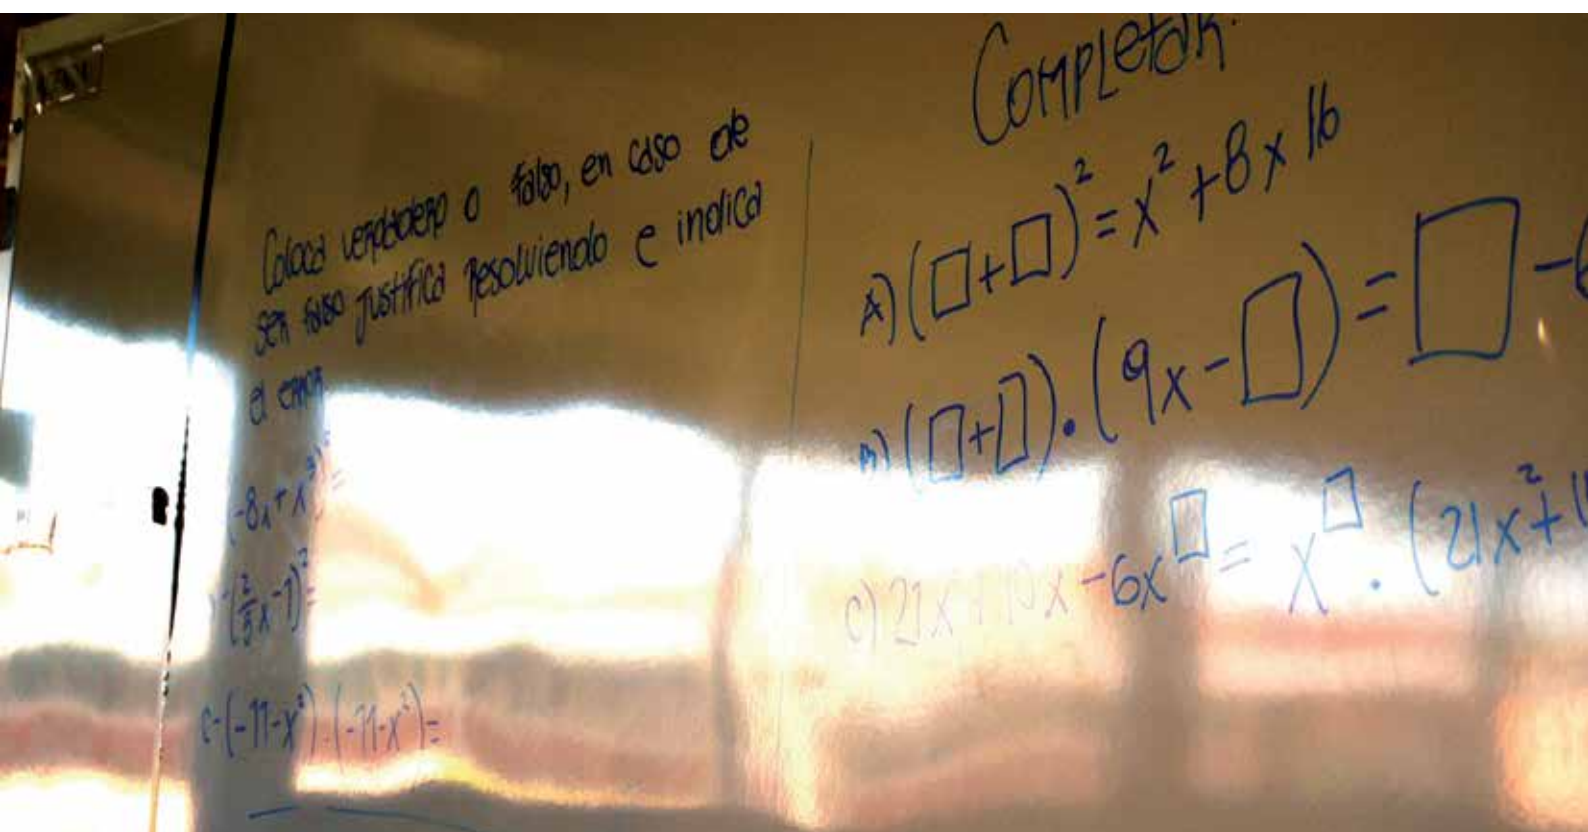 Coloca verdadero o falso, en caso de
ser falso justifica resolviendo e indica
el error
(-8x+x³)²=
-(2/5x-7)²=
c-(-11-x²).(-11-x²)=
Completar:
A) (□+□)²=x²+8x16
B) (□+□)·(9x-□)=□-
c) 21x+10x-6x^□=x^□·(21x²+